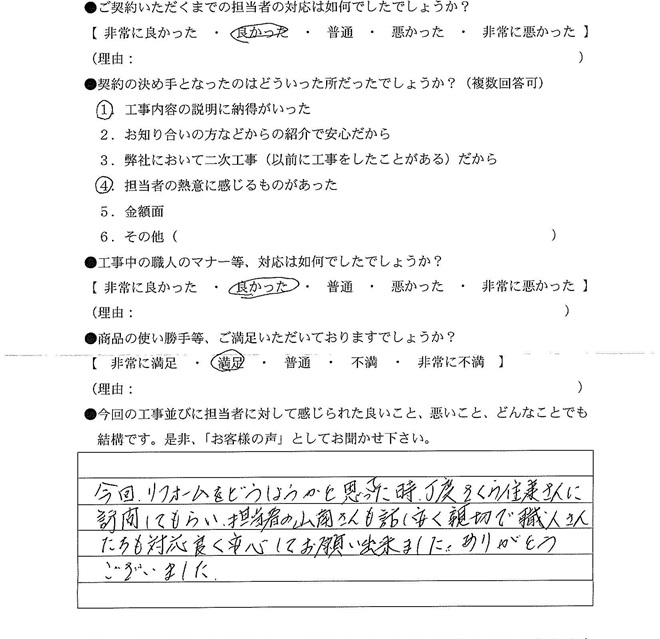 ●ご契約いただくまでの担当者の対応は如何でしたでしょうか？
【 非常に良かった ・ 良かった ・ 普通 ・ 悪かった ・ 非常に悪かった 】
（理由： ）
●契約の決め手となったのはどういった所だったでしょうか？（複数回答可）
１．工事内容の説明に納得がいった
２．お知り合いの方などからの紹介で安心だから
３．弊社において二次工事（以前に工事をしたことがある）だから
４．担当者の熱意に感じるものがあった
５．金額面
６．その他（ ）
●工事中の職人のマナー等、対応は如何でしたでしょうか？
【 非常に良かった ・ 良かった ・ 普通 ・ 悪かった ・ 非常に悪かった 】
（理由： ）
●商品の使い勝手等、ご満足いただいておりますでしょうか？
【 非常に満足 ・ 満足 ・ 普通 ・ 不満 ・ 非常に不満 】
（理由： ）
●今回の工事並びに担当者に対して感じられた良いこと、悪いこと、どんなことでも
結構です。是非、「お客様の声」としてお聞かせ下さい。
今回、リフォームをどうしようかと思った時、丁度さくら住美さんに
訪問してもらい、担当者の山岡さんも話し安く親切で職人さん
たちも対応良く安心してお願い出来ました。ありがとう
ございました。